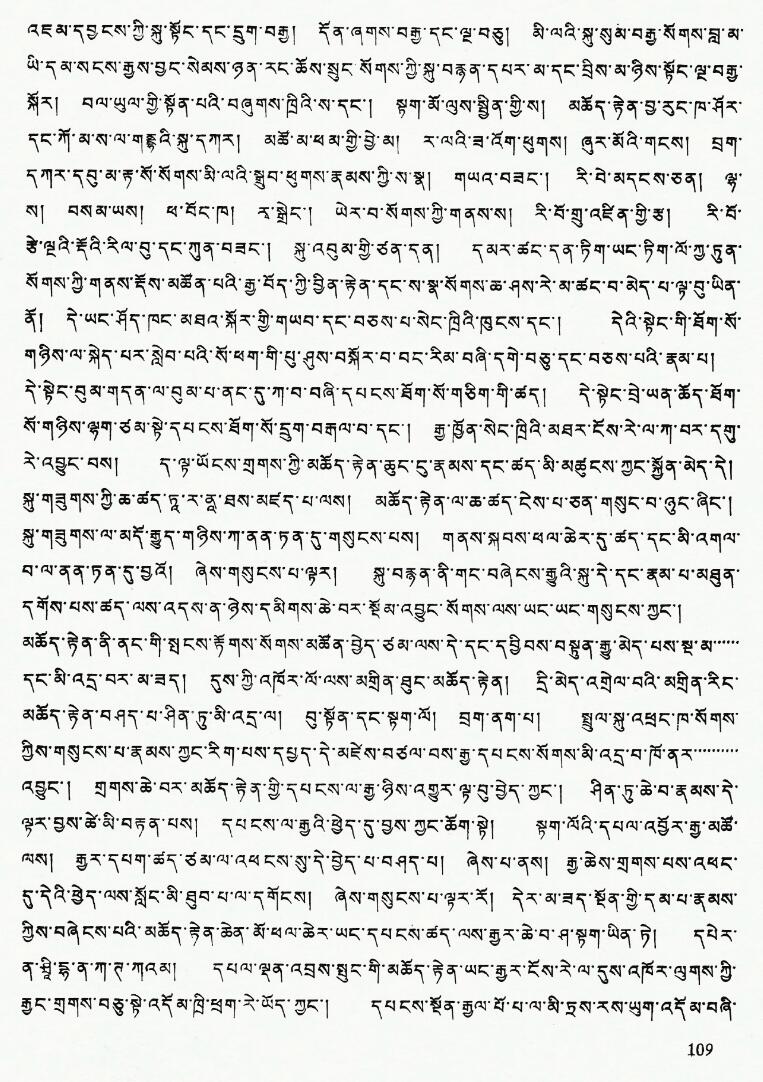 འཇམ་དབྱངས་ཀྱི་སྐུ་སྟོང་དང་དྲུག་བརྒྱ།   དོན་ཞགས་བརྒྱ་དང་ལྔ་བཅུ།   མི་ལའི་སྐུ་སུམ་བརྒྱ་སོགས་བླ་མ་
ཡི་དམ་སངས་རྒྱས་བྱང་སེམས་ཉན་རང་ཆོས་སྲུང་སོགས་ཀྱི་སྐུ་བརྙན་དཔར་མ་དང་བྲིས་མ་ཉིས་སྟོང་ལྔ་བརྒྱ་
སྐོར།   བལ་ཡུལ་གྱི་སྟོན་པའི་བཞུགས་ཁྲིའི་ས་དང་།   སྟག་མོ་ལུས་སྦྱིན་གྱི་ས།   མཆོད་རྟེན་བྱ་རུང་ཁ་ཤོར་
དང་ཀོ་མ་ས་ལ་གནྡྷའི་སྐུ་དཀར།   མཚོ་མ་ཕམ་གྱི་བྱེ་མ།   ར་ལའི་ཟ་འོག་ཕུགས།   ཞུར་མོའི་གངས།   བྲག་
དཀར་དབུ་མ་རྟ་སོ་སོགས་མི་ལའི་སྒྲུབ་ཕུགས་རྣམས་ཀྱི་ས་སྣ།   གཡའ་བཟང་།   རི་བོ་མདངས་ཅན།   ལྷ་
ས།   བསམ་ཡས།   ཕ་བོང་ཁ།   རྭ་སྒྲེང་།   ཡེར་བ་སོགས་ཀྱི་གནས་ས།   རི་བོ་གྲུ་འཛིན་གྱི་རྩ།   རི་བོ་
རྩེ་ལྔའི་རྡོའི་རིལ་བུ་དང་ཀུན་བཟང་།   སྐུ་འབུམ་གྱི་ཙན་དན།   དམར་ཚང་དན་ཏིག་ཡང་ཏིག་ལོ་ཀྱ་ཏུན་
སོགས་ཀྱི་གནས་རྡོས་མཚོན་པའི་རྒྱ་བོད་ཀྱི་བྱིན་རྟེན་དང་ས་སྣ་སོགས་ཆ་ཤས་རེ་མ་ཚང་བ་མེད་པ་ལྟ་བུ་ཡིན་
ནོ།   དེ་ཡང་ཤོད་ཁང་མཐའ་སྐོར་གྱི་གཡབ་དང་བཅས་པ་སེང་ཁྲིའི་ཁུངས་དང་།   དེའི་སྟེང་གི་ཐོག་སོ་
གཉིས་ལ་སྐེད་པར་སླེབ་པའི་སོ་ཕག་གི་པུ་ཤུས་བསྐོར་བ་བང་རིམ་བཞི་དགེ་བཅུ་དང་བཅས་པའི་རྣམ་པ།
དེ་སྟེང་བུམ་གདན་ལ་བུམ་པ་ནང་དུ་ཀ་བ་བཞི་དཔངས་ཐོག་སོ་གཅིག་གི་ཚད།   དེ་སྟེང་བྲེ་ཡན་ཆོད་ཐོག་
སོ་གཉིས་ལྷག་ཙམ་སྟེ་དཔངས་ཐོག་སོ་དྲུག་བརྒལ་བ་དང་།   རྒྱ་ཁྱོན་སེང་ཁྲིའི་མཐར་ངོས་རེ་ལ་ཀ་བར་དགུ་
རེ་འབྱུང་བས།   ད་ལྟ་ཡོངས་གྲགས་ཀྱི་མཆོད་རྟེན་ཆུང་ངུ་རྣམས་དང་ཚད་མི་མཚུངས་ཀྱང་སྐྱོན་མེད་དེ།
སྐུ་གཟུགས་ཀྱི་ཆ་ཚད་ཏཱ་ར་ནཱ་ཐས་མཛད་པ་ལས།   མཆོད་རྟེན་ལ་ཆ་ཚད་ངེས་པ་ཅན་གསུང་བ་ཉུང་ཞིང་།
སྐུ་གཟུགས་ལ་མདོ་རྒྱུད་གཉིས་ཀ་ནན་ཏན་དུ་གསུངས་པས།   གནས་སྐབས་ཕལ་ཆེར་དུ་ཚད་དང་མི་འགལ་
བ་ལ་ནན་ཏན་དུ་བྱའོ།   ཞེས་གསུངས་པ་ལྟར།   སྐུ་བརྙན་ནི་གང་བཞེངས་རྒྱུའི་སྐུ་དེ་དང་རྣམ་པ་མཐུན་
དགོས་པས་ཚད་ལས་འདས་ན་ཉེས་དམིགས་ཆེ་བར་སྡོམ་འབྱུང་སོགས་ལས་ཡང་ཡང་གསུངས་ཀྱང་།
མཆོད་རྟེན་ནི་ནང་གི་སྤངས་རྟོགས་སོགས་མཚོན་བྱེད་ཙམ་ལས་དེ་དང་དབྱིབས་བསྟུན་རྒྱུ་མེད་པས་སྔ་མ……
དང་མི་འདྲ་བར་མ་ཟད།   དུས་ཀྱི་འཁོར་ལོ་ལས་མགྲིན་ཐུང་མཆོད་རྟེན།   དྲི་མེད་འགྲེལ་བའི་མགྲིན་རིང་
མཆོད་རྟེན་བཤད་པ་ཤིན་ཏུ་མི་འདྲ་ལ།   བུ་སྟོན་དང་སྟག་ལོ།   བྲག་ནག་པ།   སྤྲུལ་སྐུ་འཕྲང་ཁ་སོགས་
ཀྱིས་གསུངས་པ་རྣམས་ཀྱང་རིག་པས་དཔྱད་དེ་མཛེས་བཙལ་བས་རྒྱ་དཔངས་སོགས་མི་འདྲ་བ་ཁོ་ནར………
འབྱུང་།   གྲགས་ཆེ་བར་མཆོད་རྟེན་གྱི་དཔངས་ལ་རྒྱ་ཉིས་འགྱུར་ལྟ་བུ་བྱེད་ཀྱང་།   ཤིན་ཏུ་ཆེ་བ་རྣམས་དེ་
ལྟར་བྱས་ཚེ་མི་བརྟན་པས།   དཔངས་ལ་རྒྱའི་ཕྱེད་དུ་བྱས་ཀྱང་ཆོག་སྟེ།   སྟག་ལོའི་དཔལ་འབྱོར་རྒྱ་མཚོ་
ལས།   རྒྱར་དཔག་ཚད་ཙམ་ལ་འཕངས་སུ་དེ་བྱེད་པ་བཤད་པ།   ཞེས་པ་ནས།   རྒྱ་ཆེས་གྲགས་པས་འཕང་
དུ་དེའི་ཕྱེད་ལས་སློང་མི་ཐུབ་པ་ལ་དགོངས།   ཞེས་གསུངས་པ་ལྟར་རོ།   དེར་མ་ཟད་སྔོན་གྱི་དམ་པ་རྣམས་
ཀྱིས་བཞེངས་པའི་མཆོད་རྟེན་ཆེན་མོ་ཕལ་ཆེར་ཡང་དཔངས་ཚད་ལས་རྒྱར་ཆེ་བ་ཤ་སྟག་ཡིན་ཏེ།   དཔེར་
དཔལ་ལྡན་འབྲས་སྤུང་གི་མཆོད་རྟེན་ཡང་རྒྱར་ངོས་རེ་ལ་དུས་འཁོར་ལུགས་ཀྱི་
རྒྱང་གྲགས་བཅུ་སྟེ་འདོམ་ཁྲི་ཕྲག་རེ་ཡོད་ཀྱང་།   དཔངས་སྔོན་རྒྱལ་པོ་པ་ལ་མི་ཏྲས་རས་ཡུག་འདོམ་བཞི་
109